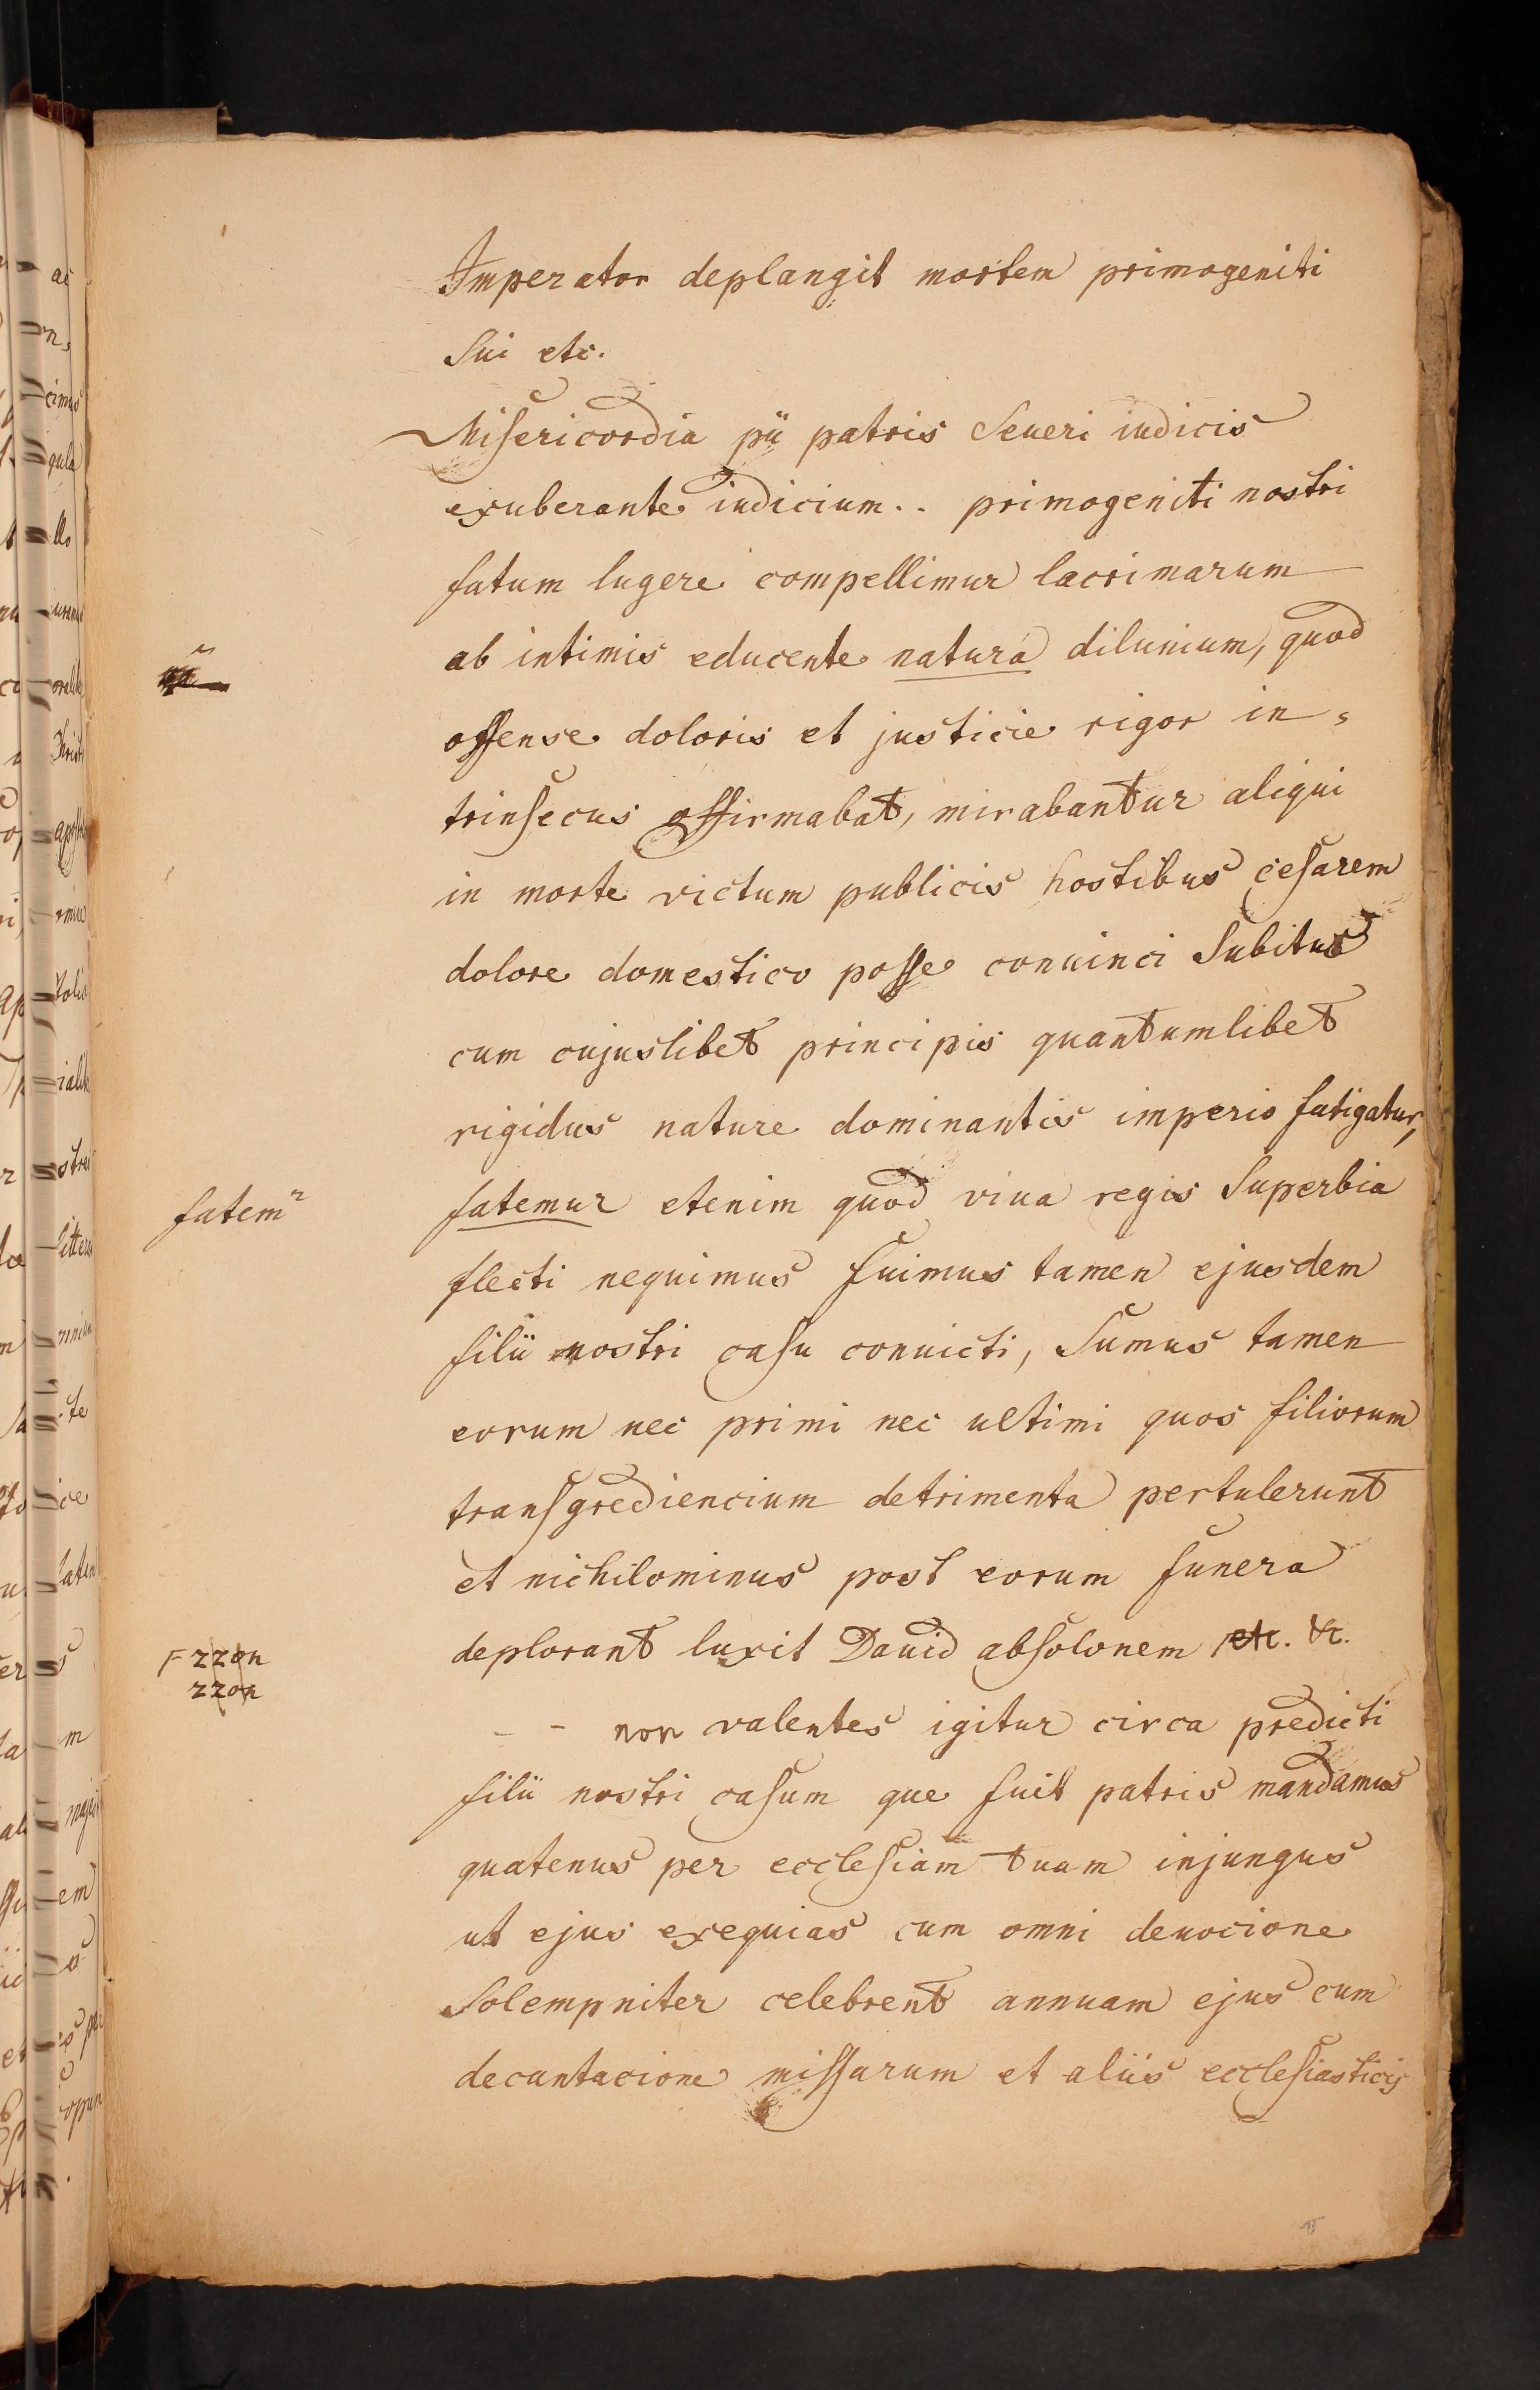 Imperator deplangit mortem primogeniti
sui etc.
Misericordia pii patris seueri iudicis
exuberante iudicium.. primogeniti nostri
fatum lugere compellimur lacrimarum
ab intimis educente natura diluuium, quod
offense doloris et justicie rigor in=
trinsecus affirmabat, mirabantur aliqui
in morte victum publicis hostibus cesarem
dolore domestico posse conuinci subitus
cum cujuslibet principis quantumlibet
rigidus nature dominantis imperio fatigatur,
fatem r
fatemur etenim quod viua regis superbia
flecti nequimus fuimus tamen ejusdem
filii nostri casu conuicti, sumus tamen
eorum nec primi nec ultimi quos filiorum
transgrediencium detrimenta pertulerunt
et nichilominus post eorum funera
deplorant luxit Dauid absolonem etc. &c.
- - non valentes igitur circa predicti
filii nostri casum que fuit patris mandamus
quatenus per ecclesiam tuam injungus
ut ejus exequias cum omni deuocione
solempniter celebrent annuam ejus cum
decantacione missarum et aliis ecclesiasticis